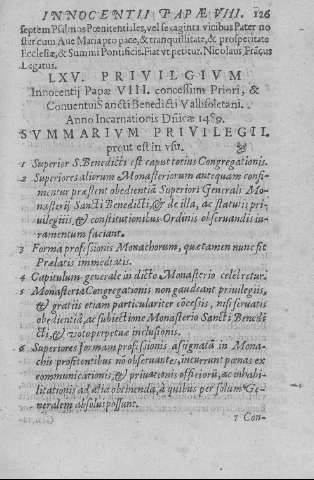 INNOCENTII PAPÆ VIII. 126
septem Psalmos Pœnitentiales, vel sexaginta vicibus Pater no
ster cum Aue Maria pro pace, & tranquillitate, & prosperitate
Ecclesiæ, & Summi Pontificis. Fiat vt petitur. Nicolaus Frãcus
Legatus.
LXV. PRIVILGIVM
Innocentij Papæ VIII. concessum Priori, &
Conuentui Sancti Benedicti Vallisoletani.
Anno Incarnationis Dñicæ 1489.
SVMMARIVM PRIVILEGII.
prout est in vsu.
1 Superior S. Benedicti est caput totius Congregationis.
2 Superiores aliorum Monasteriorum antequam confi-
mentur præstent obedientiã Superiori Generali Mo-
nasterij Sancti Benedicti, & de illa, ac statutis pri-
uilegijs, & constitutionibus Ordinis obseruandis iu-
ramentum faciant.
3 Forma professionis Monachorum, quæ tamen nunc fit
Prælatis immediatis.
4 Capitulum generale in dicto Monasterio celebretur.
5 Monasteria Congregationis non gaudeant priuilegijs,
& gratijs etiam particulariter cõcessis, nisi seruatis
obediẽtiã, ac subiectione Monasterio Sancti Benedi
cti, & voto perpetuæ inclusionis.
6 Superiores formam professionis assignatã in Mona-
chis profitentibus nõ obseruantes, incurrunt pœnas ex
communicationis, & priuationis officiorũ, ac inhabi-
litationis ad alia obtinenda, à quibus per solum Ge-
neralem absolui possunt.
7 Con-